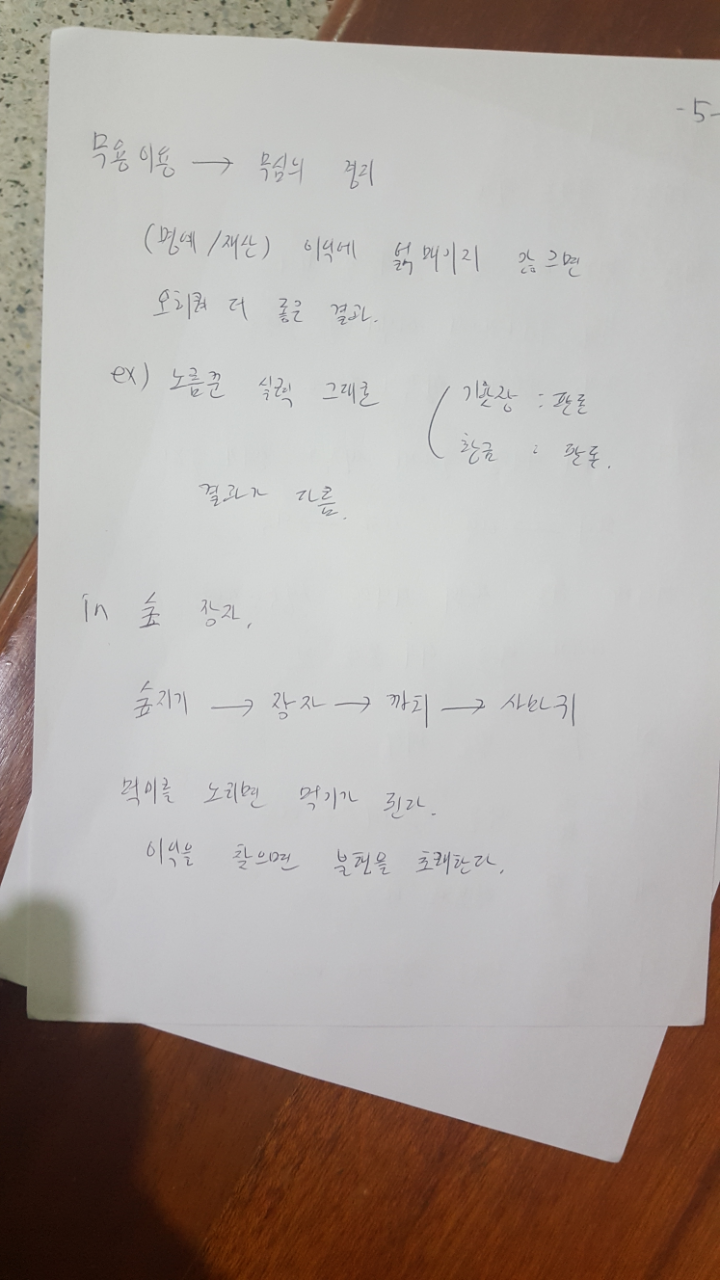 -5-
무용이용 → 무심의 경리
(명예/재산) 이익에 얽매이지 않으면
오히려 더 좋은 결과.
ex) 노름꾼 실력 그대로
기왓장 : 판돈
황금 : 판돈.
결과가 다름.
in 숲 장자.
숲지기 → 장자 → 까치 → 사마귀
먹이를 노리면 먹기가 된다.
이익을 찾으면 불현을 초래한다.